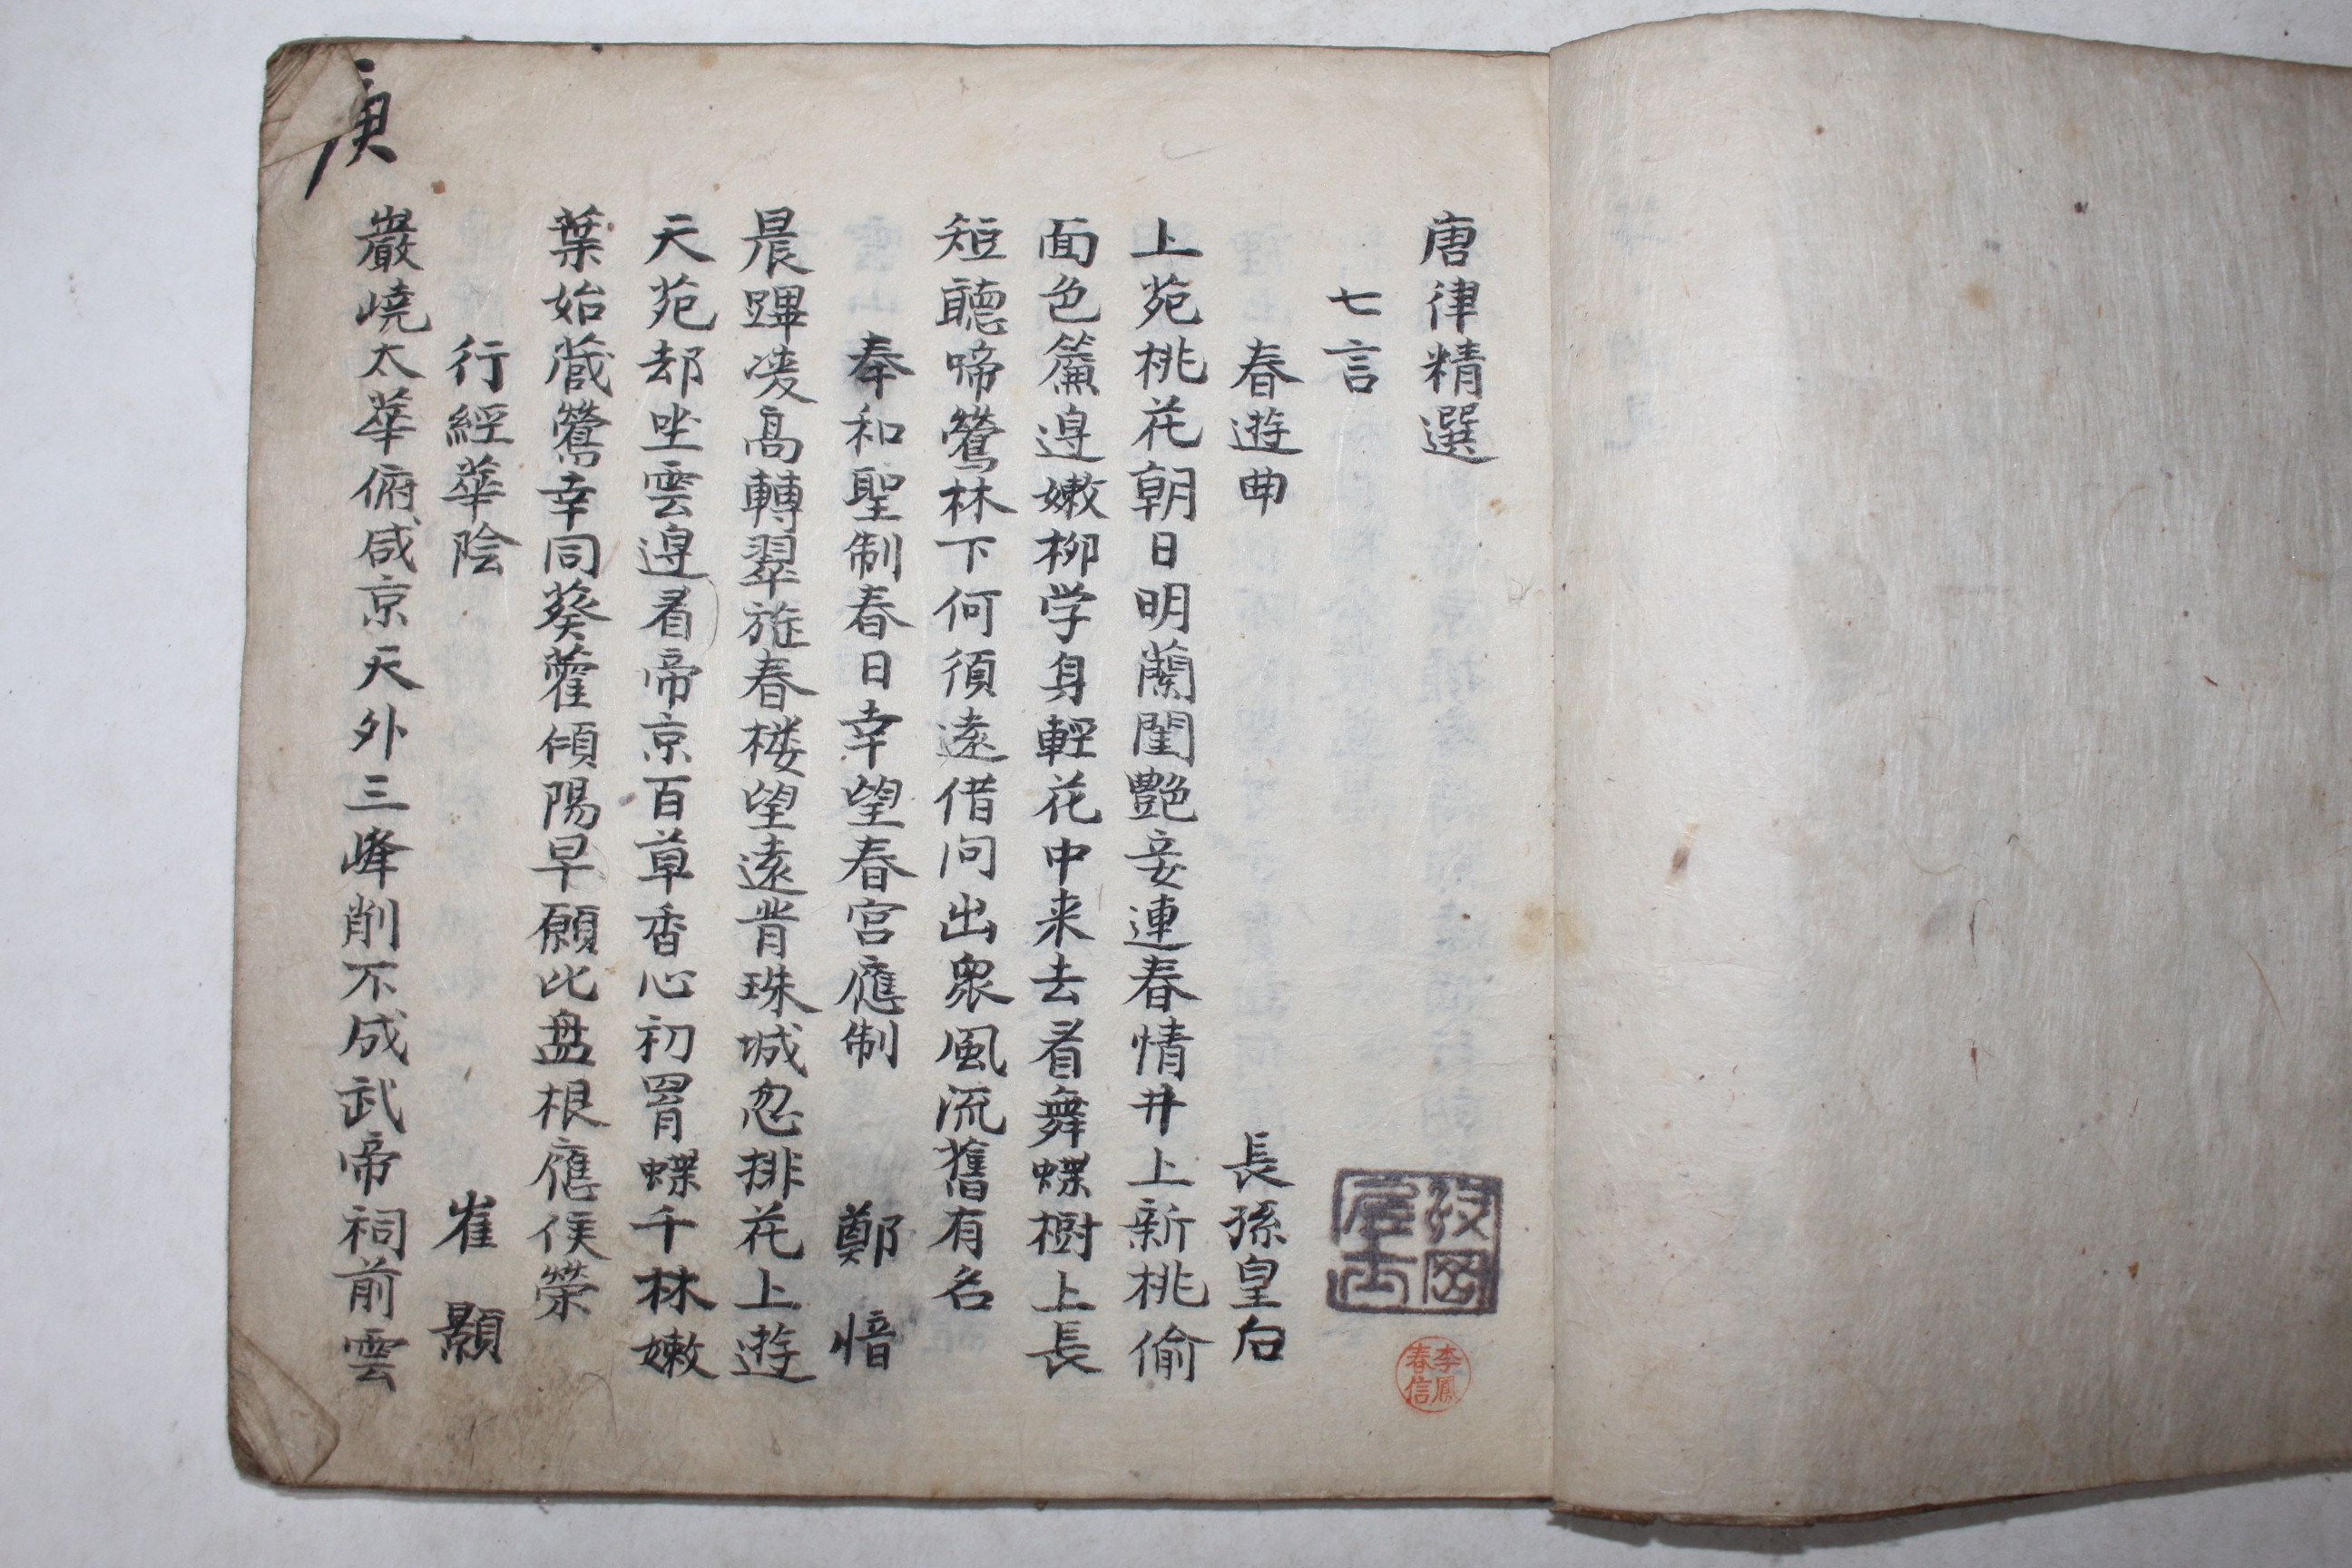 唐律精選
七言
春遊曲 長孫皇后
上苑桃花朝日明蘭閨艶妾連春情井上新桃偷
面色簷邊嫩柳学身輕花中来去看舞蝶樹上長
短聽啼鶯林下何須遠借问出衆風流舊有名
奉和聖制春日幸望春宮應制 鄭愔
晨蹕凌高轉翠旌春楼望遠背珠城忽排花上遊
天苑却坐雲邊看帝京百草香心初罥蝶千林嫩
葉始蔵鶯幸同葵藿傾陽早願比盘根應侯榮
行經華陰 崔顥
巖嶢太華俯咸京天外三峰削不成武帝祠前雲
庚
李鳳春信